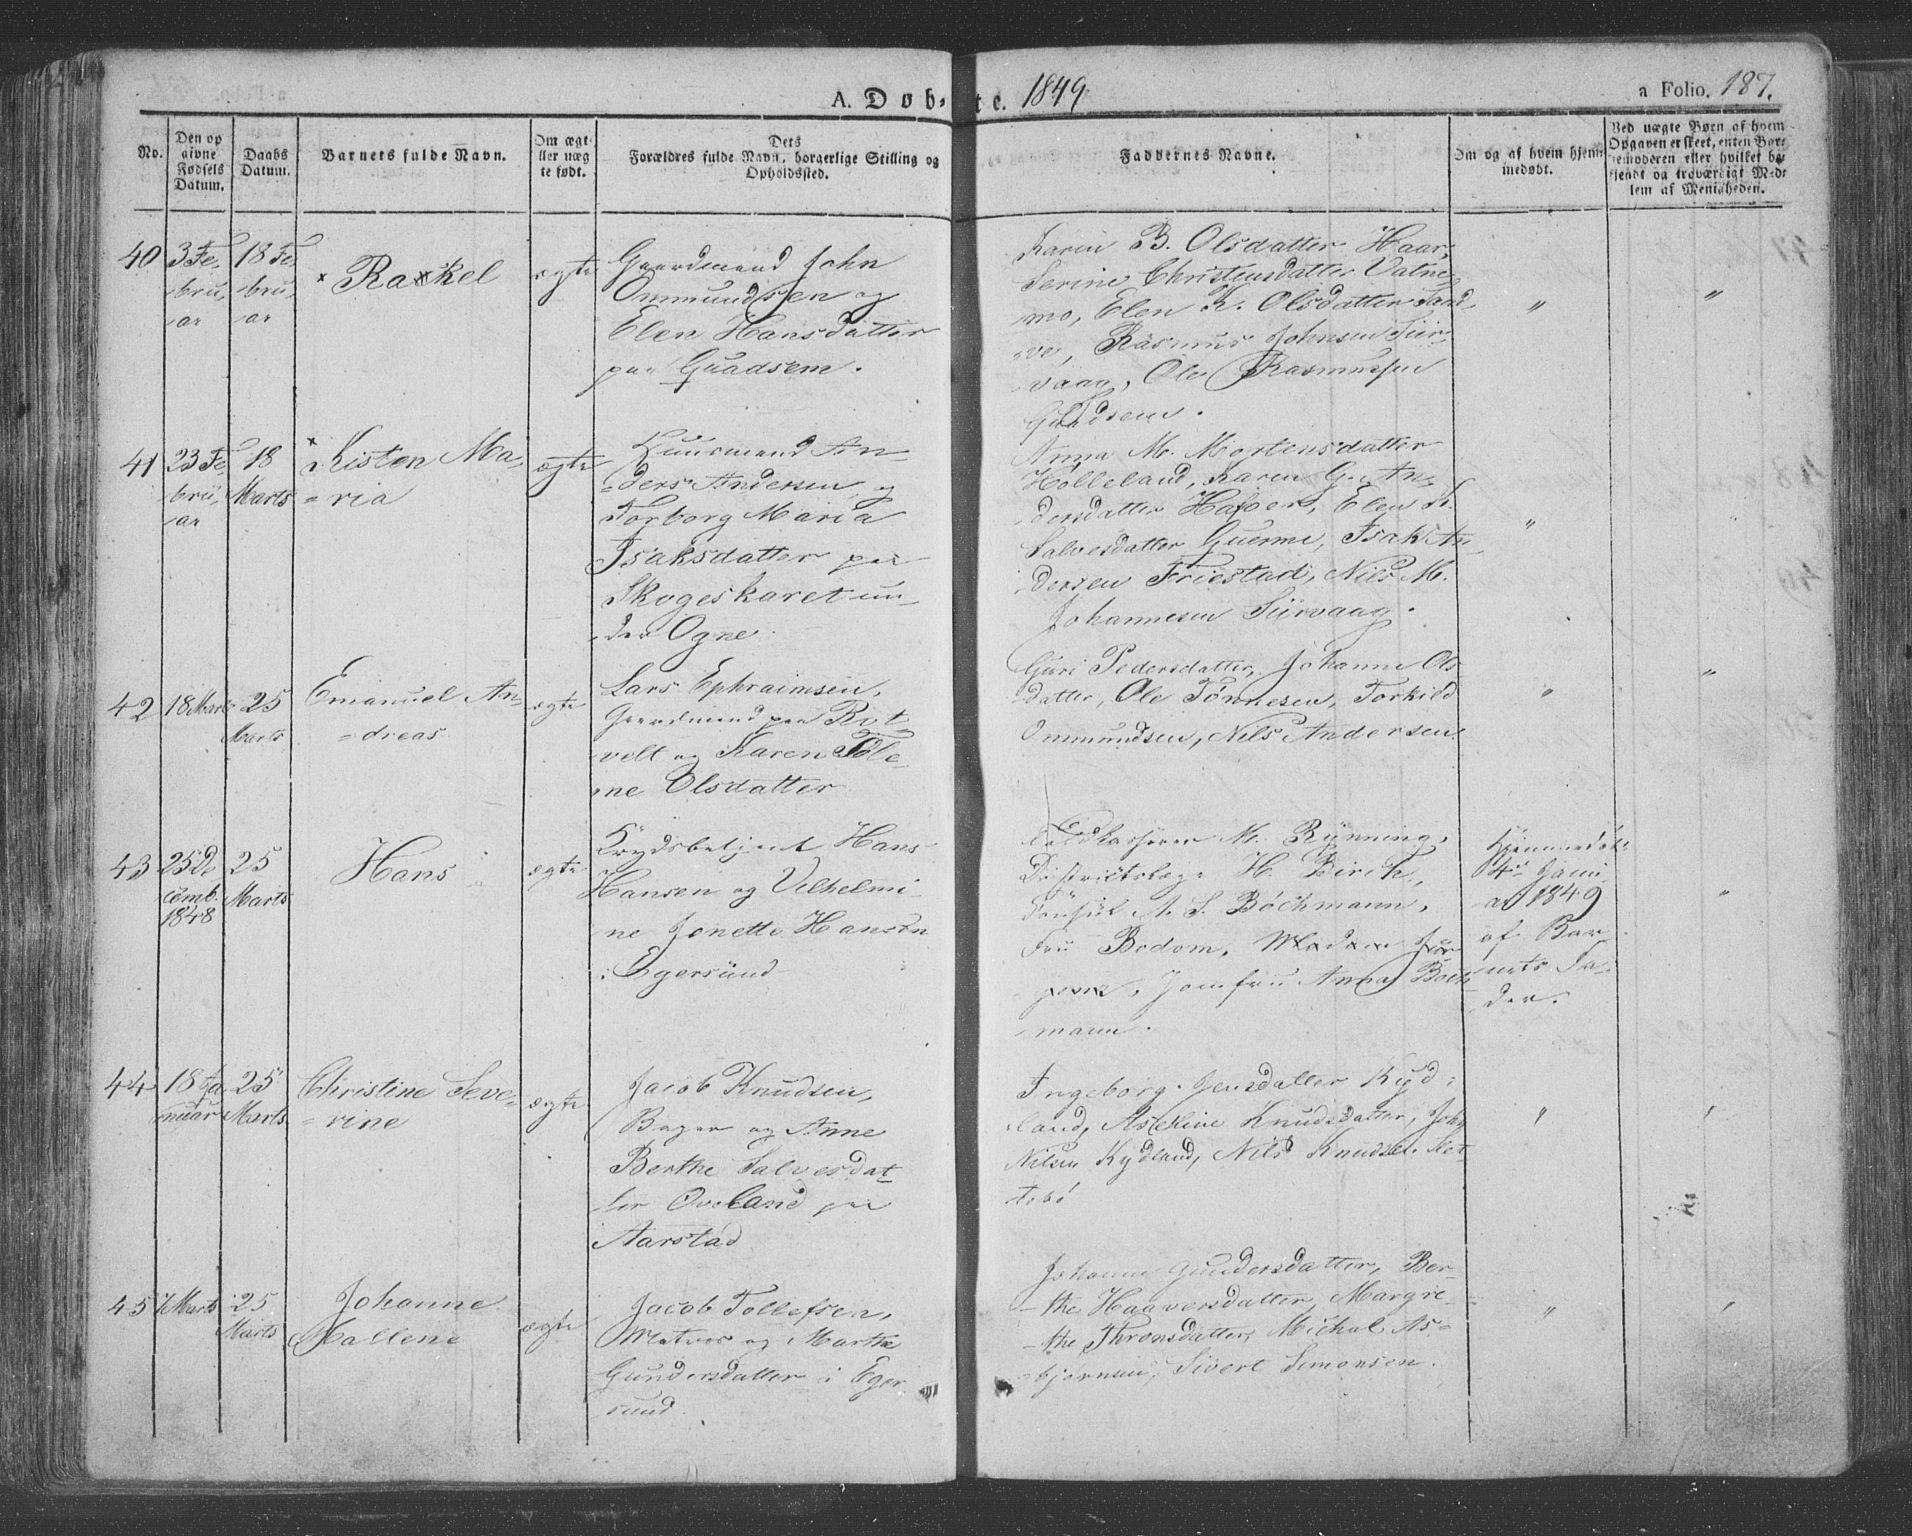 A. Døb-te. 1849
a Folio. 187.
No.
Den op
givne
Fødsels
Datum.
Daabs
Datum.
Barnets fulde Navn.
Om ægt
eller uæg
te født.
Dets
Forældres fulde Navn, borgerlige Stilling og
Opholdssted.
Faddernes Navne.
Om og af hvem hjem-
medøbt.
Ved uægte Børn af hvem
Opgaven er skeet, enten Bar-
nemoderen eller hvilket be-
kjendt og troværdigt Med-
lem af Menigheden.
40
3 Fe-
bru-
ar
18 Fe-
bru-
ar
× Rakel
ægte
Gaardmand John
Ommundsen og
Elen Hansdatter
paa Guadsem.
Karen B. Olsdatter Haar,
Serine Christensdatter Vatne-
mo, Elen K. Olsdatter Sand-
ve, Rasmus Johnsen Siir-
vaag, Ole Rasmussen
Guadsem.
"
"
41
23 Fe-
bru-
ar
18
Marts
× Kisten Ma-
ria
ægte
Huusmand An-
ders Andersen og
Torborg Maria
Isaksdatter paa
Skogeskaret un-
der Ogne.
Anna M. Mortensdatter
Hølleland, Karen G. An-
dersdatter
Salvesdatter Isak An-
dersen Friestad, Nils M.
Johannesen Siirvaag.
"
42
18 Marts
25
Marts
Emanuel An-
dreas
ægte
Lars Ephraimsen,
Gaardmand paa Bot-
velt og Karen Tole-
ne Olsdatter
Guri Pedersdatter, Johanne Ols-
datter, Ole Tønnesen, Torkild
Ommundsen, Nils Andersen.
"
"
43
25 De-
cemb.
1848
25
Marts
Hans
ægte
Krydsbetjent Hans
Hansen og Vilhelmi-
ne Jonette Hansen
i Egersund
Toldkasserer M. Rynning,
Districtslæge H. Birch,
A. S. Bóchmann,
Fru Bodom, Madam Jør-
gene, Jomfru Anna Boch-
mann.
Hjemmedøbt
4de Janu-
ar 1849
af Bar-
nets Fa-
der.
"
44
18 Ja-
nuar
25
Marts
Christine Seve-
rine
ægte
Jacob Knudsen,
Bager og Anne
Berthe Salvesdat-
ter Oveland paa
Aarstad
Ingeborg Jensdatter Kyd-
land, Knudsdatter, John
Nilsen Kydland, Nils Knudsen Slet-
tebø
"
"
45
7 Marts
25
Marts
Johanne
Malene
ægte
Jacob Tollefsen,
Matros og Marthe
Gundersdatter i Eger-
sund.
Johanne Gundersdatter, Ber-
the Haaversdatter, Margre-
the Thronsdatter, Michal As-
bjørnsen, Sivert Simonsen.
"
"